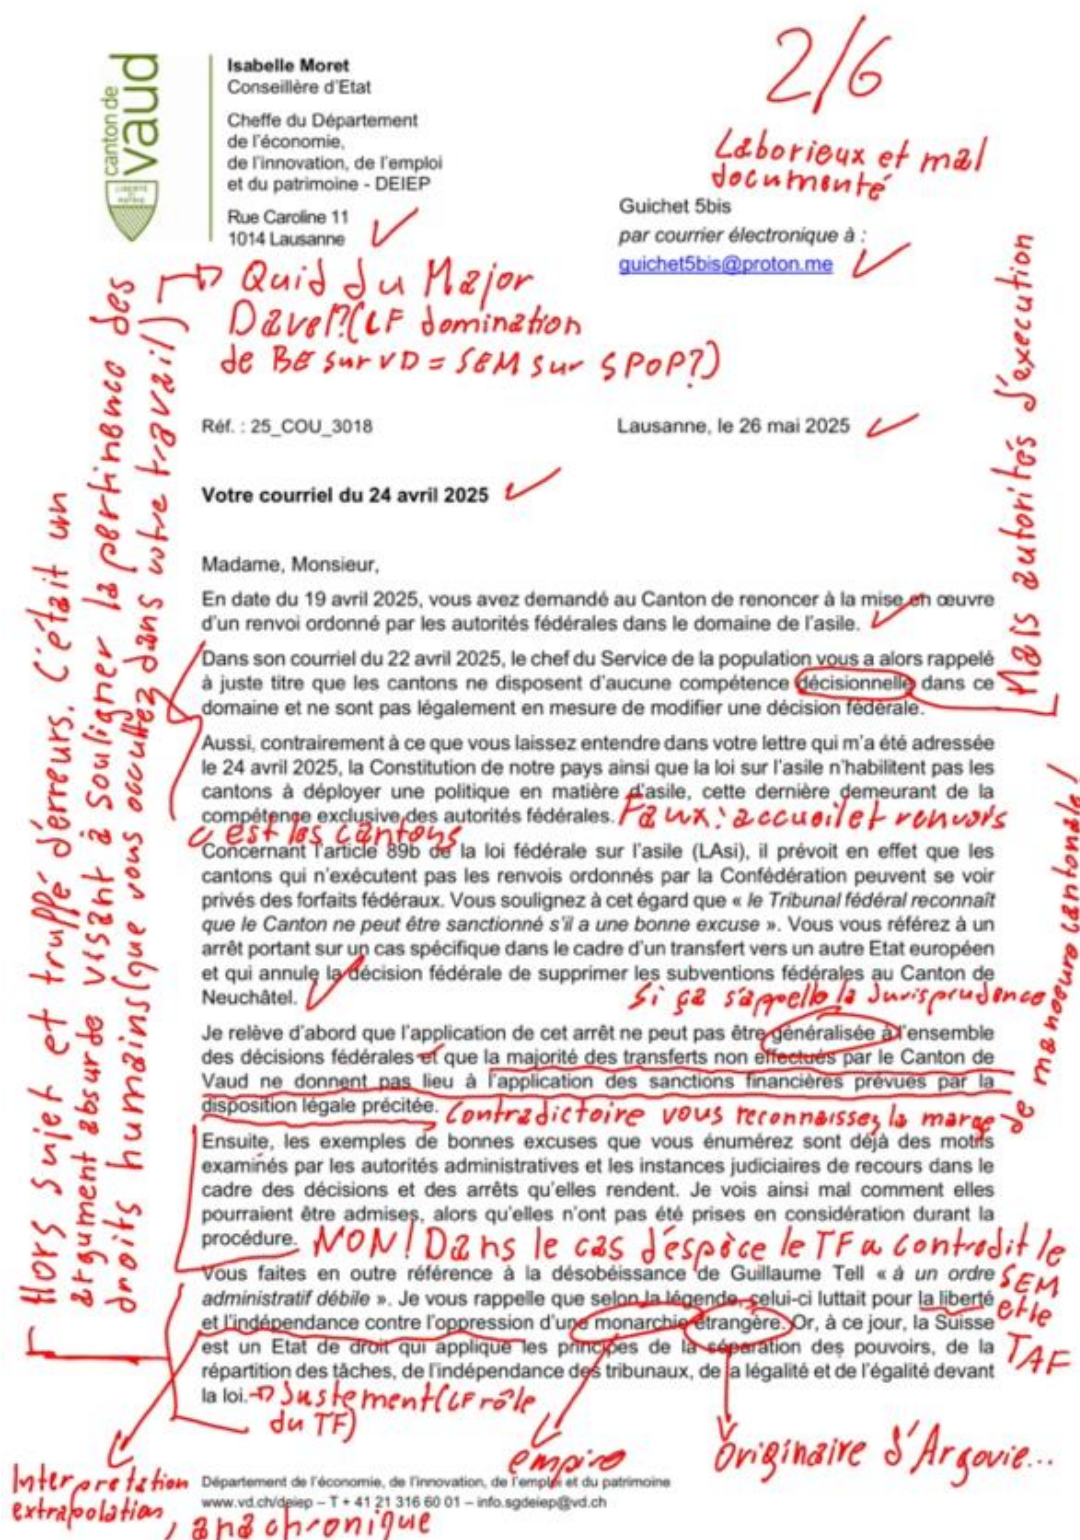 canton de
vaud
LIBERTÉ
ET
PATRIE
Isabelle Moret
Conseillère d'Etat
Cheffe du Département
de l'économie,
de l'innovation, de l'emploi
et du patrimoine - DEIEP
Rue Caroline 11
1014 Lausanne
2/6
Laborieux et mal
documenté
Guichet 5bis
par courrier électronique à :
guichet5bis@proton.me
Quid du Major
Davel? (CF domination
de BE sur VD = SEM sur SPOP?)
Réf. : 25_COU_3018
Lausanne, le 26 mai 2025
Votre courriel du 24 avril 2025
Madame, Monsieur,
En date du 19 avril 2025, vous avez demandé au Canton de renoncer à la mise en œuvre
d'un renvoi ordonné par les autorités fédérales dans le domaine de l'asile.
Dans son courriel du 22 avril 2025, le chef du Service de la population vous a alors rappelé
à juste titre que les cantons ne disposent d'aucune compétence décisionnelle dans ce
domaine et ne sont pas légalement en mesure de modifier une décision fédérale.
Mais autorités d'execution
Aussi, contrairement à ce que vous laissez entendre dans votre lettre qui m'a été adressée
le 24 avril 2025, la Constitution de notre pays ainsi que la loi sur l'asile n'habilitent pas les
cantons à déployer une politique en matière d'asile, cette dernière demeurant de la
compétence exclusive des autorités fédérales.
Faux: accueil et renvois
c'est les cantons
Concernant l'article 89b de la loi fédérale sur l'asile (LAsi), il prévoit en effet que les
cantons qui n'exécutent pas les renvois ordonnés par la Confédération peuvent se voir
privés des forfaits fédéraux. Vous soulignez à cet égard que « le Tribunal fédéral reconnaît
que le Canton ne peut être sanctionné s'il a une bonne excuse ». Vous vous référez à un
arrêt portant sur un cas spécifique dans le cadre d'un transfert vers un autre Etat européen
et qui annule la décision fédérale de supprimer les subventions fédérales au Canton de
Neuchâtel.
Si ça s'appelle la Jurisprudence
Je relève d'abord que l'application de cet arrêt ne peut pas être généralisée à l'ensemble
des décisions fédérales et que la majorité des transferts non effectués par le Canton de
Vaud ne donnent pas lieu à l'application des sanctions financières prévues par la
disposition légale précitée.
Contradictoire vous reconnaissez la marge
de manoeuvre cantonale!
Ensuite, les exemples de bonnes excuses que vous énumérez sont déjà des motifs
examinés par les autorités administratives et les instances judiciaires de recours dans le
cadre des décisions et des arrêts qu'elles rendent. Je vois ainsi mal comment elles
pourraient être admises, alors qu'elles n'ont pas été prises en considération durant la
procédure.
NON! Dans le cas d'espèce le TF a contredit le
SEM
et le
TAF
Vous faites en outre référence à la désobéissance de Guillaume Tell « à un ordre
administratif débile ». Je vous rappelle que selon la légende, celui-ci luttait pour la liberté
et l'indépendance contre l'oppression d'une monarchie étrangère. Or, à ce jour, la Suisse
est un Etat de droit qui applique les principes de la séparation des pouvoirs, de la
répartition des tâches, de l'indépendance des tribunaux, de la légalité et de l'égalité devant
la loi.
Justement (CF rôle
du TF)
Hors sujet et truffé d'erreurs. C'était un
argument absurde visant à souligner la pertinence des
droits humains (que vous occultez dans votre travail)
empire
Originaire d'Argovie...
Interpretation
extrapolation, anachronique
Département de l'économie, de l'innovation, de l'emploi et du patrimoine
www.vd.ch/deiep – T + 41 21 316 60 01 – info.sgdeiep@vd.ch